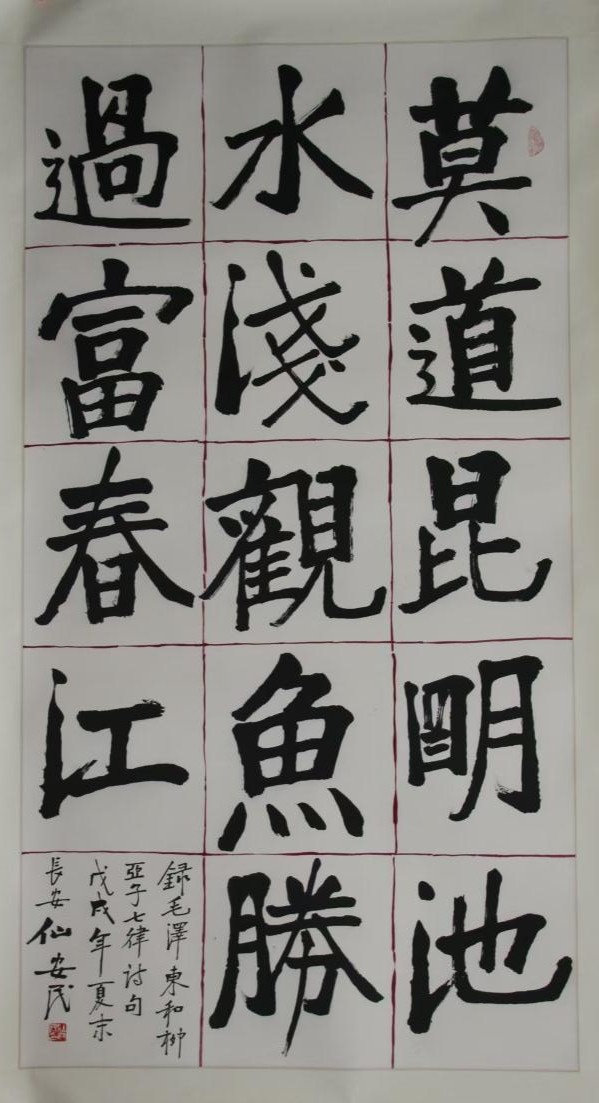 莫道昆朙池
水淺觀魚勝
過富春江
録毛澤東和柳
亞子七律诗句
戊戌年夏末
長安仙安民